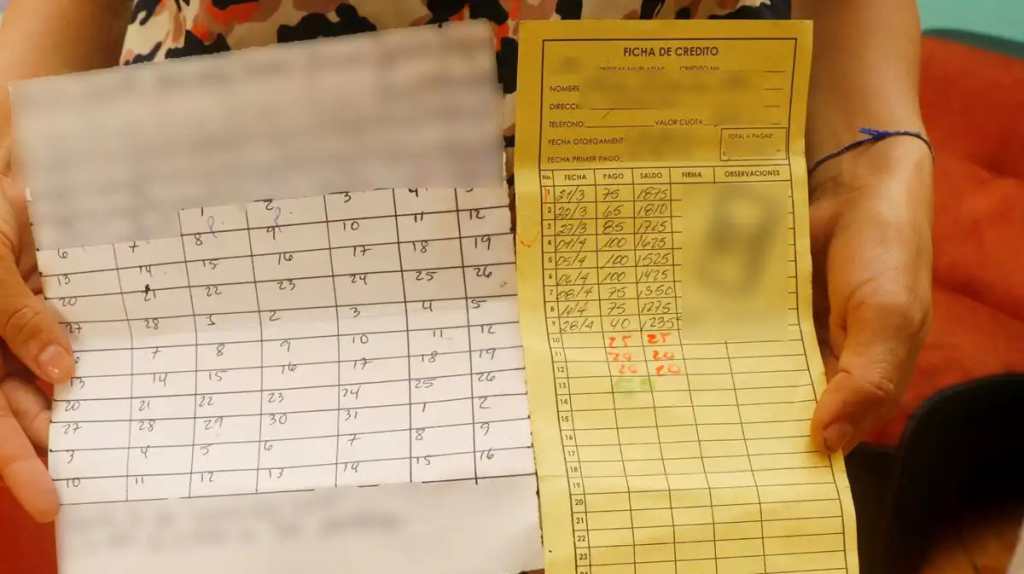 1 2 3 4
6 7 8 9 10 11 12
13 14 15 16 17 18 19
20 21 22 23 24 25 26
27 28 2 3 4 5
7 8 9 10 11 12
13 14 15 16 17 18 19
20 21 22 23 24 25 26
27 28 29 30 31 1 2
3 4 5 6 7 8 9
10 11 12 13 14 15 16
FICHA DE CREDITO
NOMBRE
DIRECCI
TELÉFONO: VALOR CUOTA:
TOTAL A PAGAR:
FECHA OTORGAMIENT
FECHA PRIMER PAGO:
No. FECHA PAGO SALDO FIRMA OBSERVACIONES
1 21/3 75 1875
2 65 1810
3 27/3 85 1725
4 04/4 100 1625
5 05/4 100 1525
6 06/4 100 1425
7 08/4 75 1350
8 14/4 75 1275
9 28/4 40 1235
10 25 25
11 20 20
12 20 20
13
14
15
16
17
18
19
20
21
22
23
24